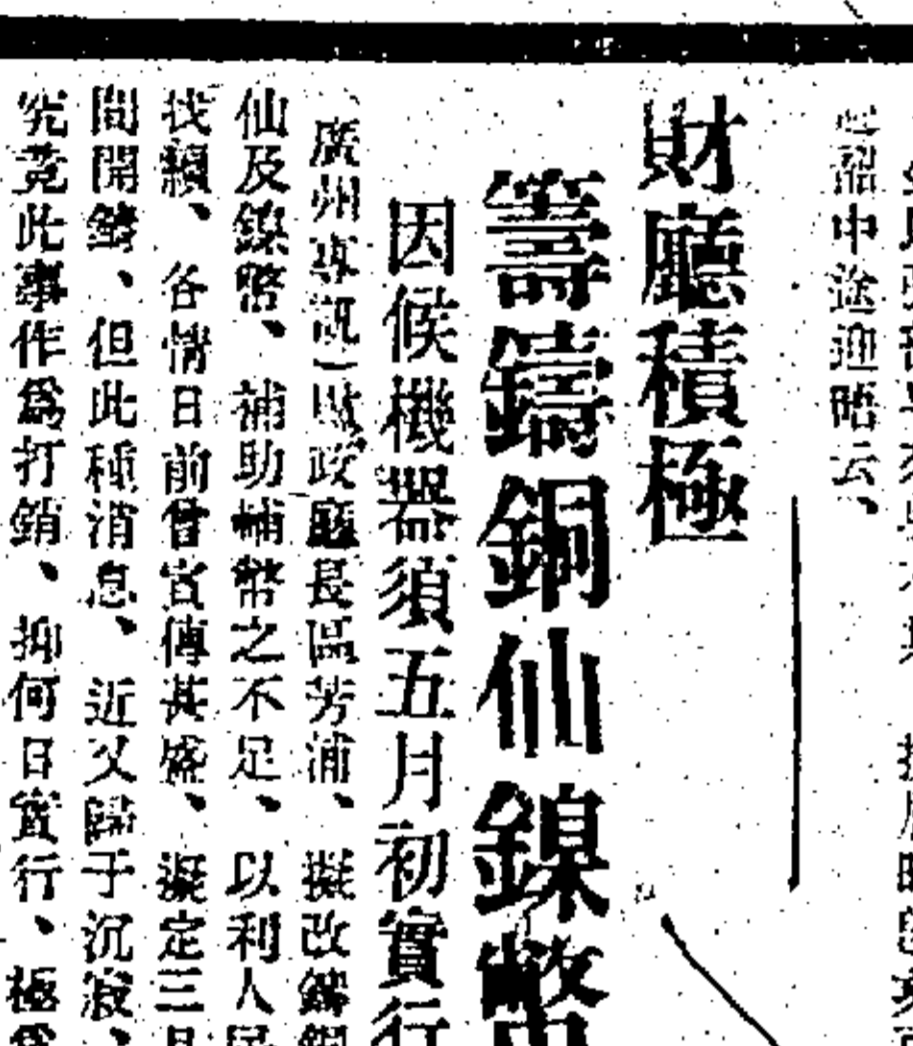 韶中途迎晤云、
財廳積極
籌鑄銅仙鎳幣
因候機器須五月初實行
廣州專訊）財政廳長區芳浦、擬改鑄銅
仙及鎳幣、補助輔幣之不足、以利人民
找續、各情日前曾宣傳甚盛、擬定三月
間開鑄、但此種消息、近又歸于沉寂、
究竟此事作爲打銷、抑何日實行、極爲